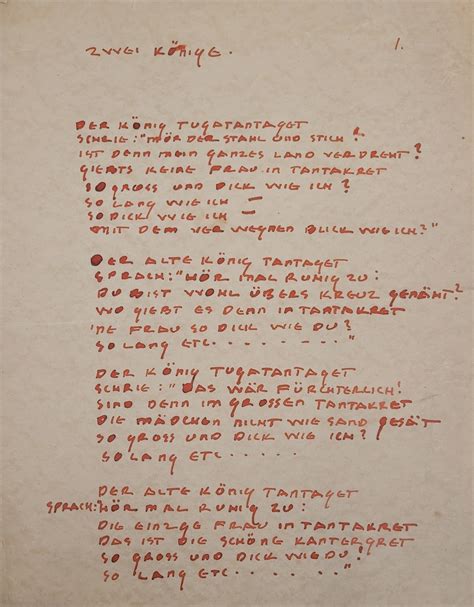 ZWEI KÖNIGE.
1.
DER KÖNIG TUGATANTAGET
SCHRIE: "MÖRDER STAHL UND STICH!
IST DENN MEIN GANZES LAND VERDREHT?
GIEBTS KEINE FRAU IN TANTAKRET
SO GROSS UND DICK WIE ICH?
SO LANG WIE ICH —
SO DICK WIE ICH —
MIT DEM VERWEGNEN BLICK WIE ICH?"
DER ALTE KÖNIG TANTAGET
SPRACH: "HÖR MAL RUHIG ZU:
DU BIST WOHL ÜBERS KREUZ GENÄHT?
WO GIEBT ES DENN IN TANTAKRET
'NE FRAU SO DICK WIE DU?
SO LANG ETC. . . . . . . ."
DER KÖNIG TUGATANTAGET
SCHRIE: "DAS WÄR FÜRCHTERLICH!
SIND DENN IM GROSSEN TANTAKRET
DIE MÄDCHEN NICHT WIE SAND GESÄT
SO GROSS UND DICK WIE ICH?
SO LANG ETC . . . . . "
DER ALTE KÖNIG TANTAGET
SPRACH: "HÖR MAL RUHIG ZU:
DIE EINZGE FRAU IN TANTAKRET
DAS IST DIE SCHÖNE KANTERGRET
SO GROSS UND DICK WIE DU!
SO LANG ETC. . . . . . "